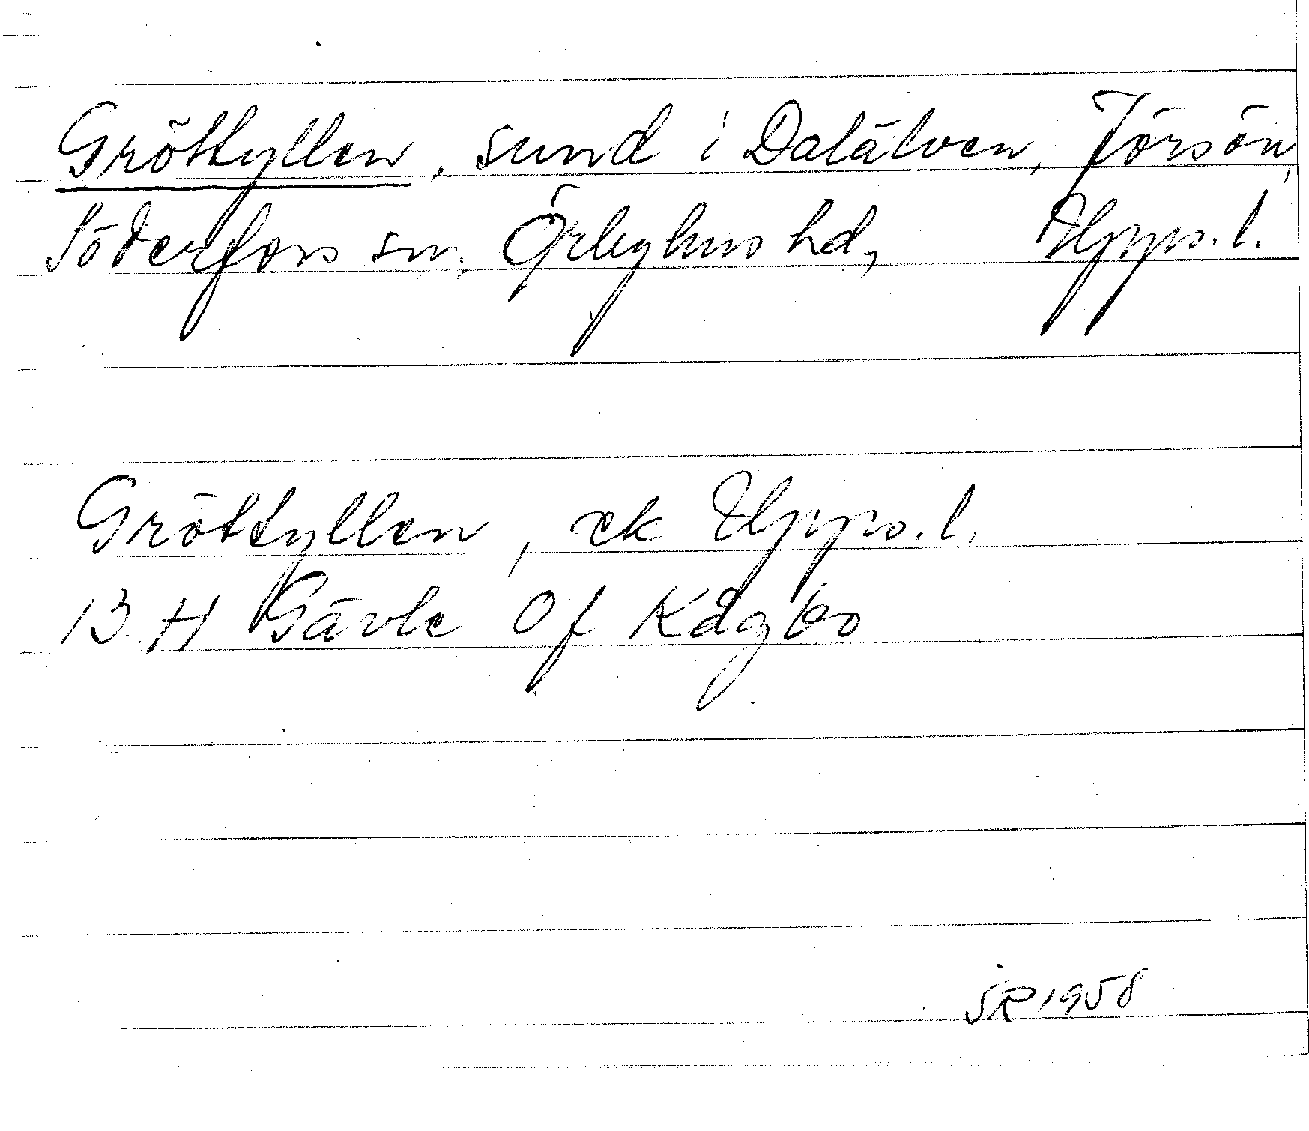 Gröttyllen, sund i Dalälven, Jörsön,
Söderfors sn, Örbyhus hd, Upps. l.
Gröttyllen, ek Upps. l.
13 H Gävle Of Kågbo
SR 1958